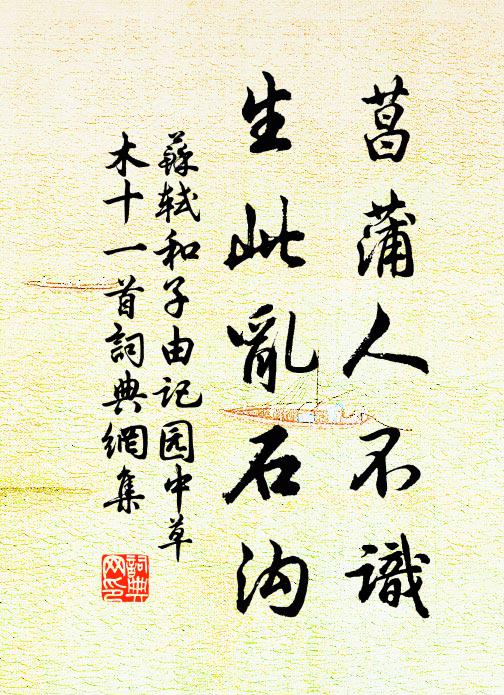 菖蒲人不識
生此亂石沟
蘇轼和子由记园中草
木十一首詞典網集
詞典
网印